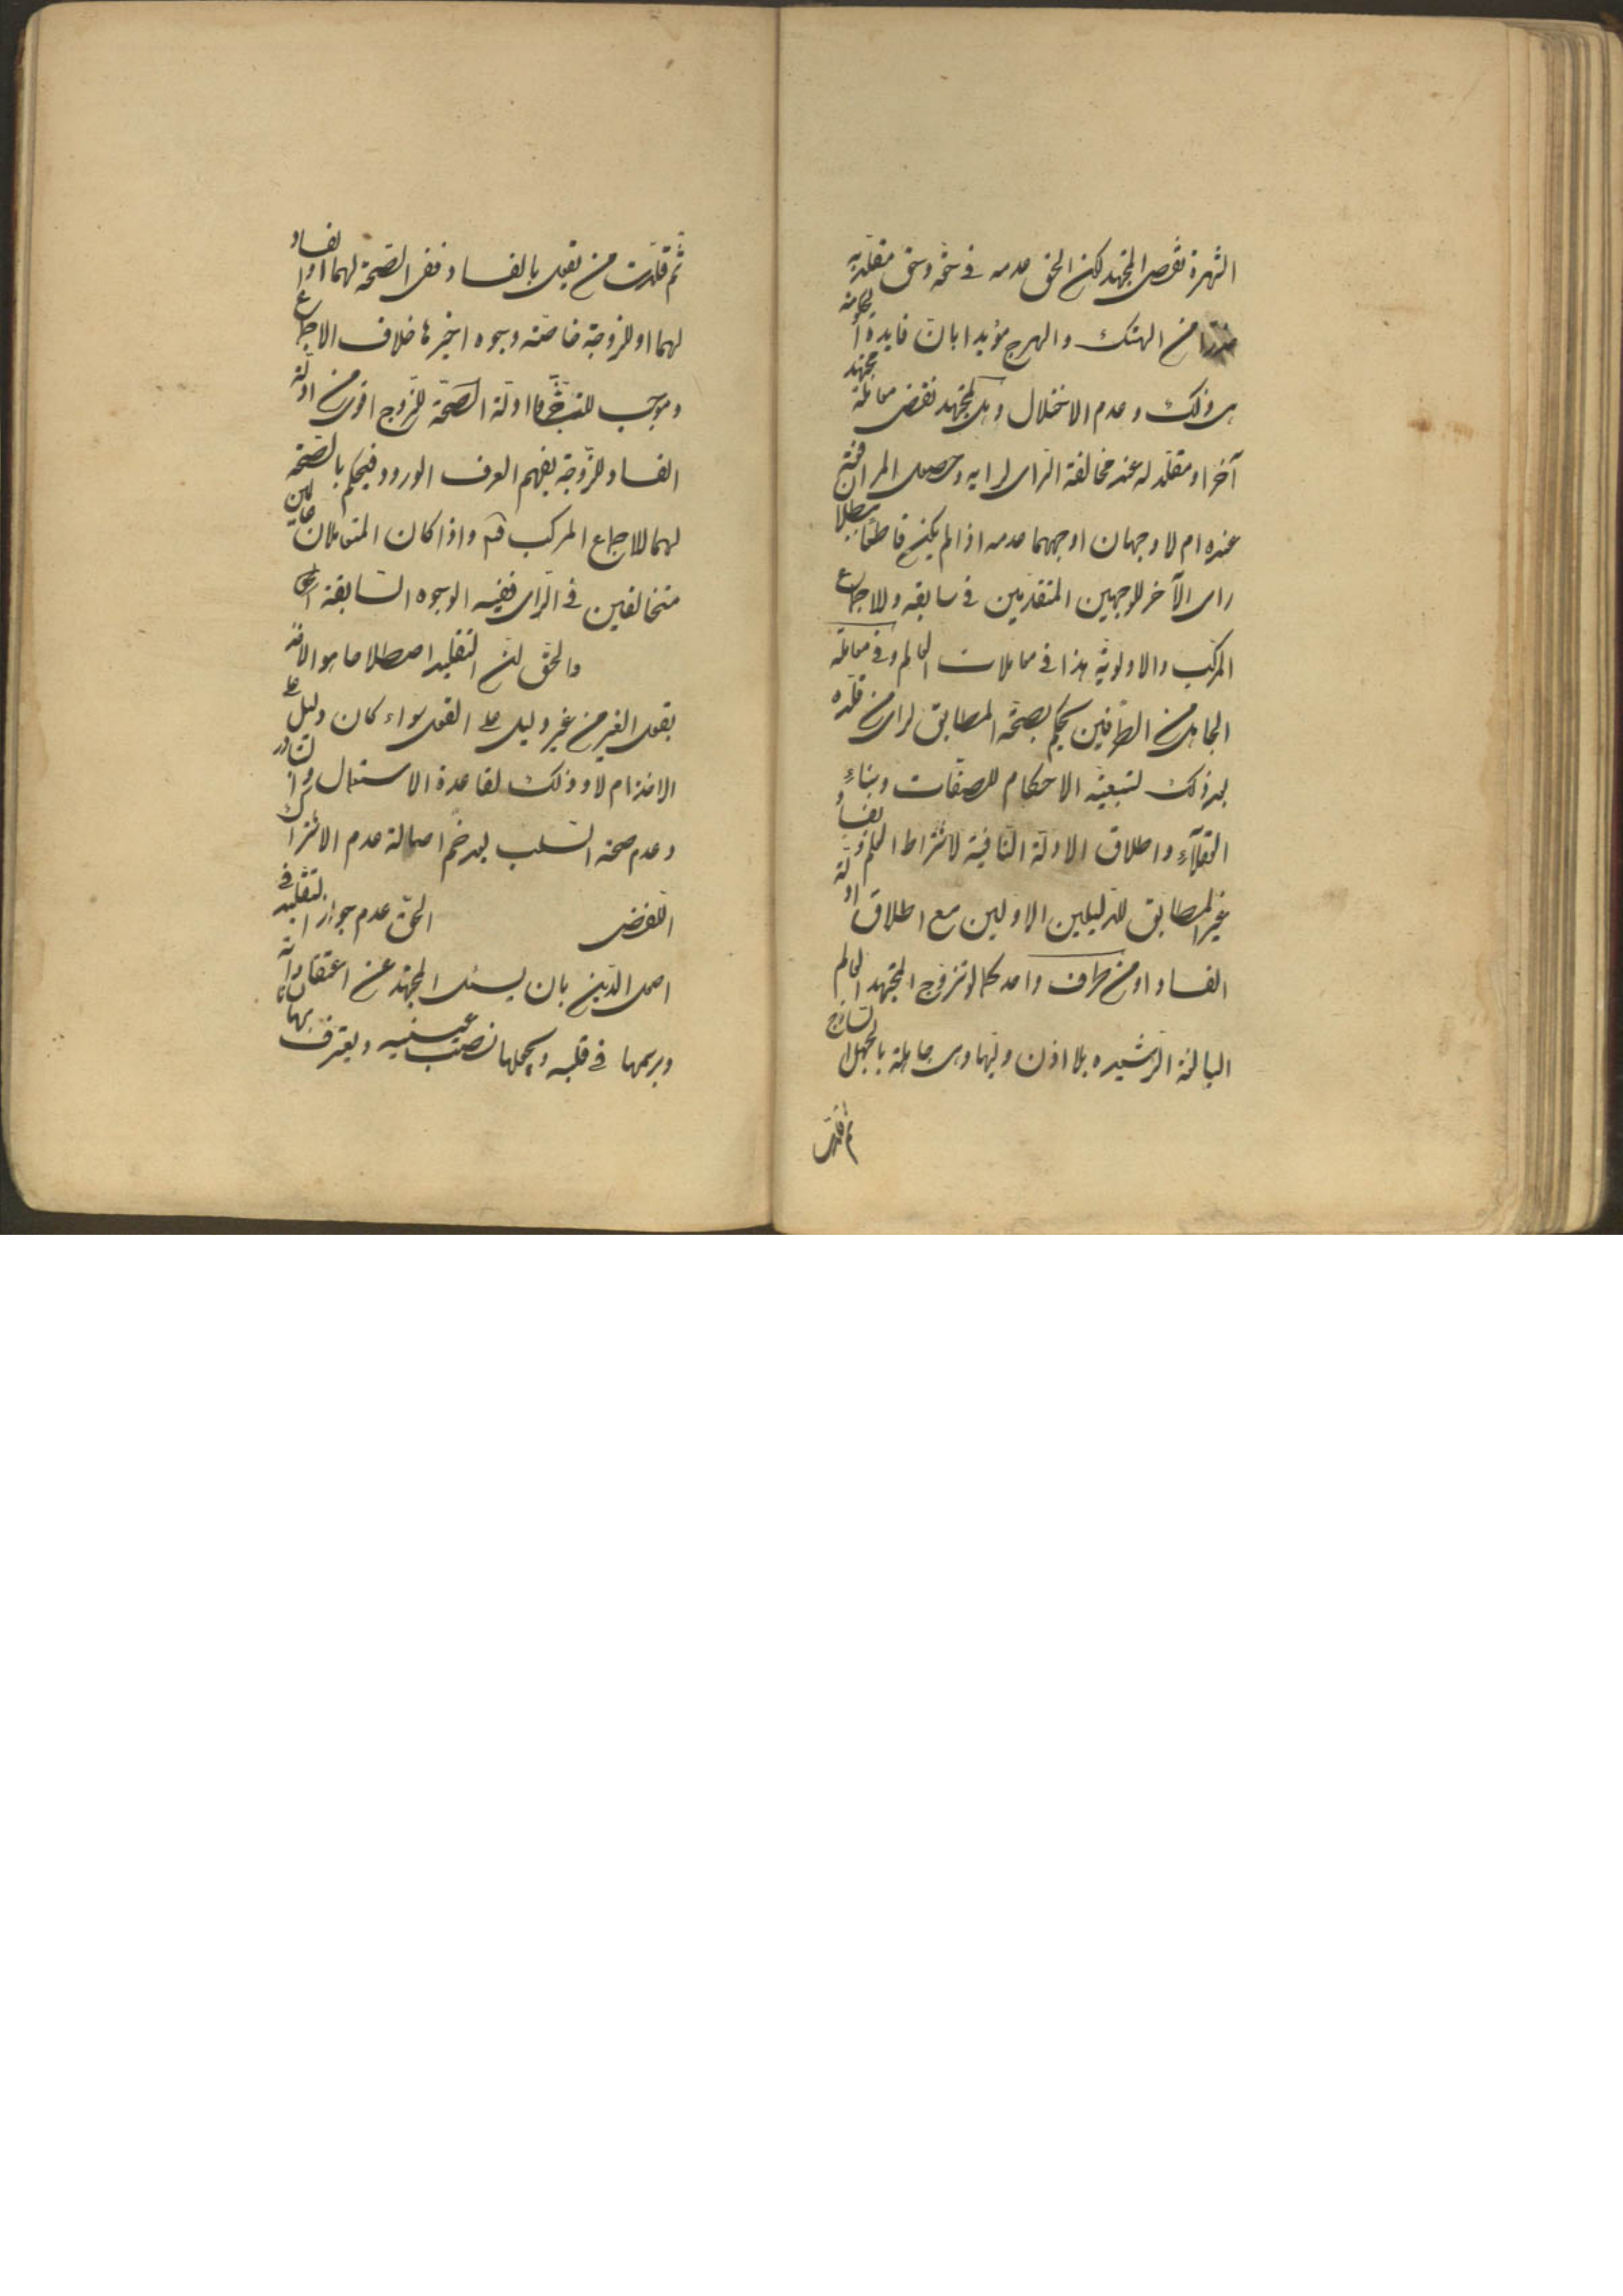 الشهرة نقض المجتهد لكن الحق عدمه في حقه وحق مقلديه
من الهتك والهرج مؤيدا بان فايدة الحكومة
هى ذلك وعدم الاختلال وهل لمجتهد نقض معاملة مجتهد
آخر او مقلد له عند مخالفة الراى لرايه وحصول المرافعة
عنده ام لا وجهان اوجههما عدمه اذا لم يكن قاطعا ببطلان
راى الآخر للوجهين المتقدمين في سابقه وللاجماع
المركب والاولوية هذا في معاملات العالم وفي معاملة
الجاهل من الطرفين يحكم بصحة المطابق لراى من قلده
بعد ذلك لتبعية الاحكام للصفات وبناء
العقلآء واطلاق الادلة النافية لاشتراط العلم وبفساد
غير المطابق للدليلين الاولين مع اطلاق ادلة
الفساد او من طرف واحد كما لو تزوج المجتهد العالم
البالغة الرشيده بلا اذن وليها وهى جاهلة بالجهل الساذج
ثم قلدت
ثم قلدت من يقول بالفساد ففى الصحة لهما او الفساد
لهما او للزوجة خاصة وجوه اخيرها خلاف الاجماع
وموجب ادلة الصحة للزوج اقوى من ادلة
الفساد للزوجة بفهم العرف الورود فيحكم بالصحة
لهما للاجماع المركب فتم واذا كان المتعاملان عالمين
متخالفين في الراى ففيه الوجوه السابقة
والحق ان التقليد اصطلاحا هو الاخذ
بقول الغير من غير دليل على القول سواء كان دليل على
الالتزام لا وذلك لقاعدة الاستعمال والتبادر
وعدم صحة السلب بعد ضم اصالة عدم الاشتراك
الحق عدم جواز التقليد في
اصول الدين بان يسئل المجتهد عن اعتقاداته
ويرسمها في قلبه ويجعلها نصب عينيه ويعترف بها